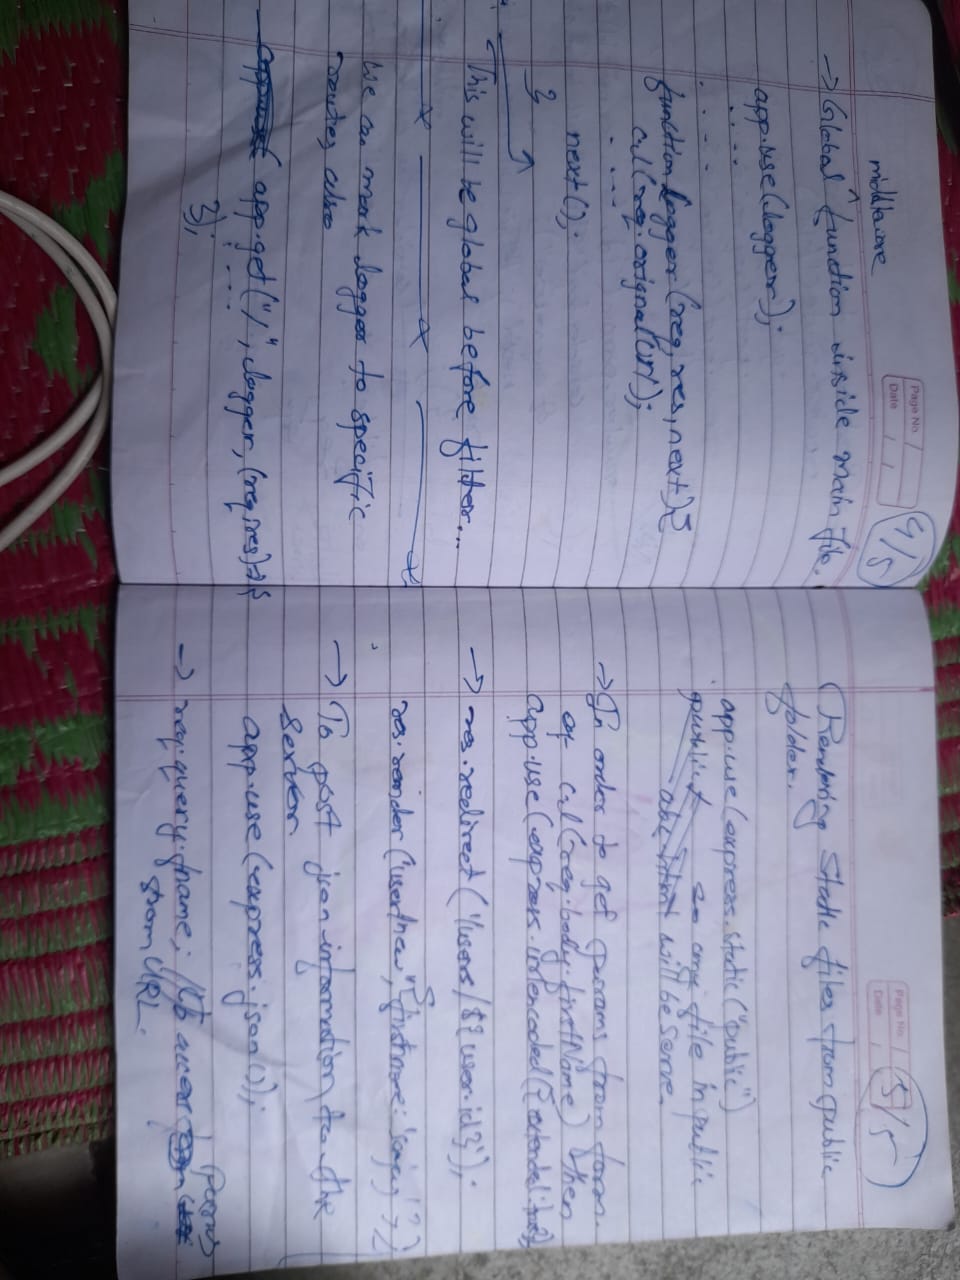 Page No.
Date
4/5
middleware
→ Global ^ function inside main file.
app.use(logger);
. . . .
. . . .
function logger(req, res, next) {
c.l(req.originalUrl);
. . . .
next();
}
This will be global before filter...
We can mark logger to specific
routes also
app.get("/", logger, (req, res) => {
. . . .
});
Page No.
Date
5/5
Rendering Static files from public
folder.
app.use(express.static("public")
so any file in public
will be serve
→ In order to get params from form.
of c.l(req.body.firstName) then
app.use(express.urlencoded({extended:
→ res.redirect(`/users/${user.id}`);
res.render("user/new", {firstname:
→ To post json information to the
Server
app.use(express.json());
→ req.query.fname; // to access
params
from URL.